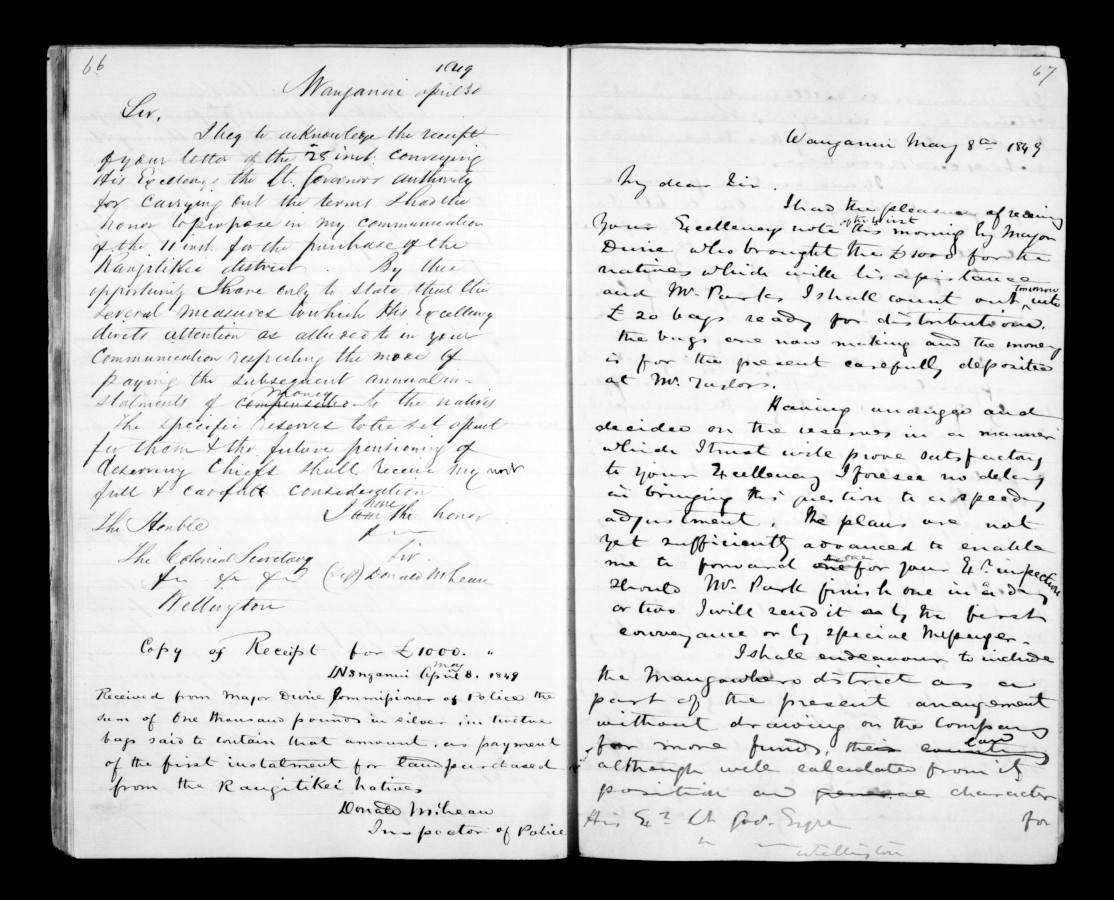 66
1849
Wanganui April 30
Sir,
I beg to acknowledge the receipt
of your letter of the 28 inst: conveying
His Excellency the Lt. Governors authority
for carrying out the terms I had the
honor to propose in my communication
of the 11 inst. for the purchase of the
Rangitikei district. By this
opportunity I have only to state that the
several measures to which His Excellency
directs attention as alluded to in your
Communication respecting the mode of
paying the subsequent annual in-
stalments of compensation money to the natives
the specific reserves to be set apart
for them & the future pensioning of
deserving Chiefs shall receive my most
full & carefull consideration
I am have the honor
The Honble
The Colonial Secretary Sir.
&c &c &c (sigd) Donald McLean
Wellington
Copy of Receipt for £1000. "
Wanganui April May 8. 1849
Received from Major Durie Commissioner of Police the
sum of One thousand pounds in silver in twelve
bags said to contain that amount, as payment
of the first instalment for land purchased
from the Rangitikei natives
Donald McLean
Inspector of Police
67
Wanganui May 8th 1849
My dear Sir.
I had the pleasure of receiving
Your Excellencys note of the inst this morning by Major
Durie who brought the £1000 for the
natives which with his assistance
and Mr. Parks I shall count out tomorrow into
£20 bags ready for distribution.
the bags are now making and the money
is for the present carefully deposited
at Mr. Taylors.
Having arranged and
decided on the reserves in a manner
which I trust will prove satisfactory
to your Excellency I foresee no delay
in bringing this question to a speedy
adjustment. The plans are not
yet sufficiently advanced to enable
me to forward one for your Ex. inspection
should Mr. Park finish one in a day
or two I will send it by the first
conveyance or by special Messenger.
I shall endeavour to include
the Mangawhero district as a
part of the present arrangement
without drawing on the Company
for more funds, this country land
although well calculated from its
position and general character
His Ex Lt Gov. Eyre for
" — Wellington